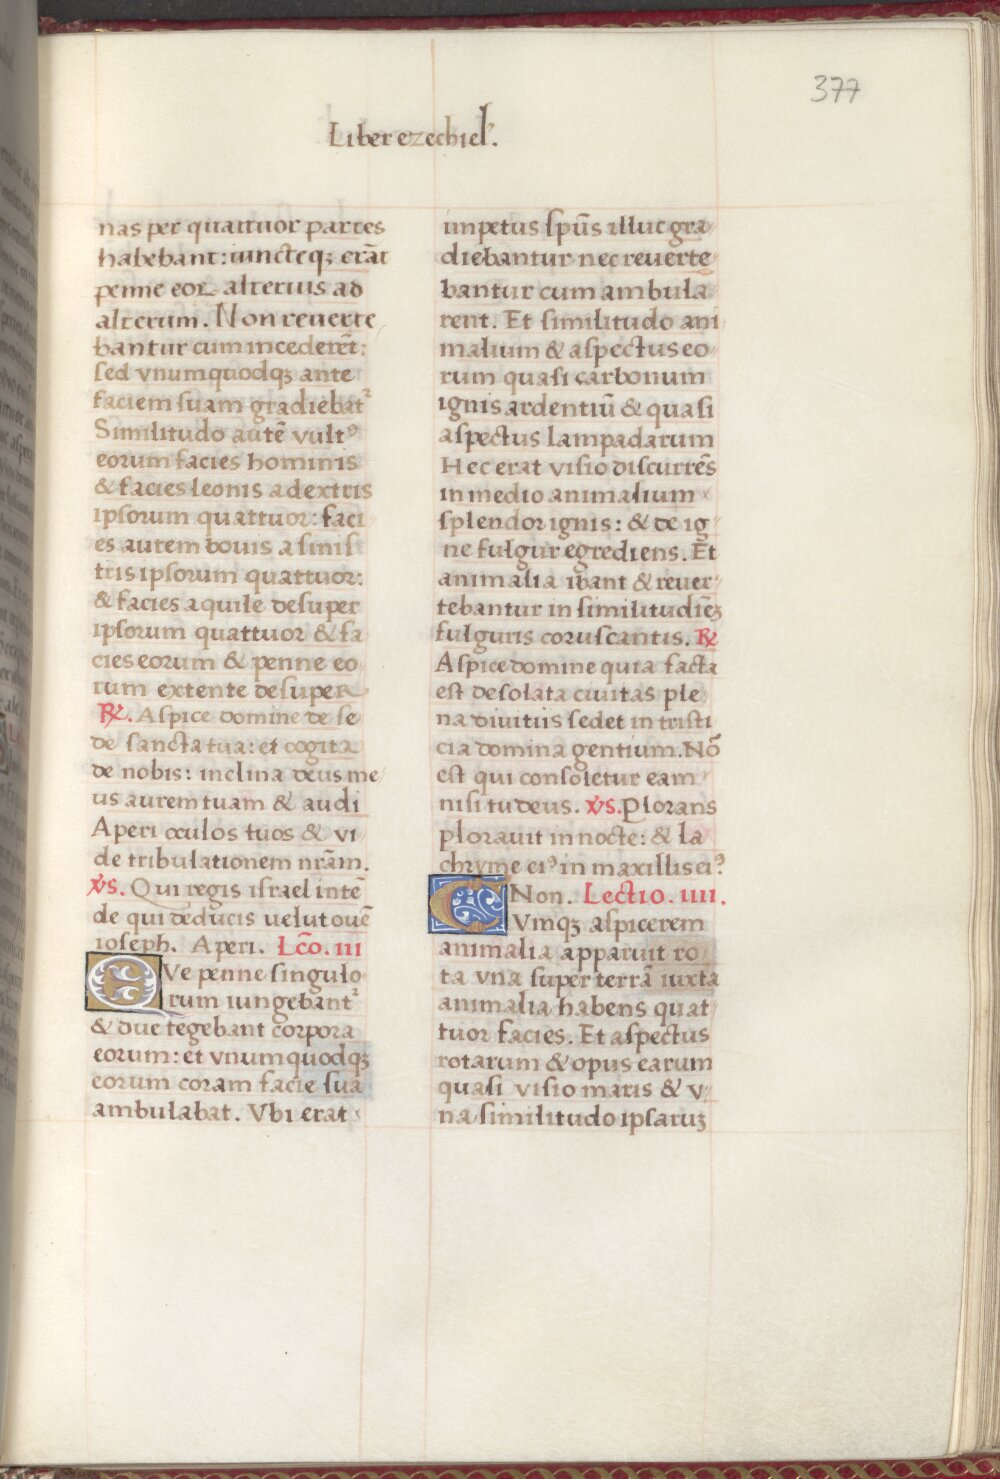 377
Liber ezechiel.
nas per quattuor partes
habebant: iuncteqꝫ erāt
penne eoꝝ alterius ad
alterum. Non reuerte
bantur cum incederēt:
sed vnumquodqꝫ ante
faciem suam gradiebat᷑
Similitudo autē vultꝰ
eorum facies hominis
& facies leonis a dextris
ipsorum quattuor: faci
es autem bouis a sinis
tris ipsorum quattuor:
& facies aquile desuper
ipsorum quattuor & fa
cies eorum & penne eo
rum extente desuper
℟. Aspice domine de se
de sancta tua: et cogita
de nobis: inclina deus me
us aurem tuam & audi
Aperi oculos tuos & vi
de tribulationem nr̄am.
v̄s. Qui regis israel intē
de qui deducis uelut ouē
ioseph. Aperi. Lc̄o. iii
QVe penne singulo
rum iungebant᷑
& due tegebant corpora
eorum: et vnumquodqꝫ
eorum coram facie sua
ambulabat. Vbi erat
impetus sp̄us illuc gra
diebantur nec reuerte
bantur cum ambula
rent. Et similitudo ani
malium & aspectus eo
rum quasi carbonum
ignis ardentiū & quasi
aspectus lampadarum
Hec erat visio discurrēs
in medio animalium
splendor ignis: & de ig
ne fulgur egrediens. Et
animalia ibant & reuer
tebantur in similitudīeꝫ
fulguris coruscantis. ℟
Aspice domine quia facta
est desolata ciuitas ple
na diuitiis sedet in tristi
cia domina gentium. Nō
est qui consoletur eam
nisi tu deus. v̄s. Plorans
plorauit in nocte: & la
chryme eiꝰ in maxillis eiꝰ
Non. Lectio. iiii.
CVmqꝫ aspicerem
animalia apparuit ro
ta vna super terrā iuxta
animalia habens quat
tuor facies. Et aspectus
rotarum & opus earum
quasi visio maris & v
na similitudo ipsaruꝫ